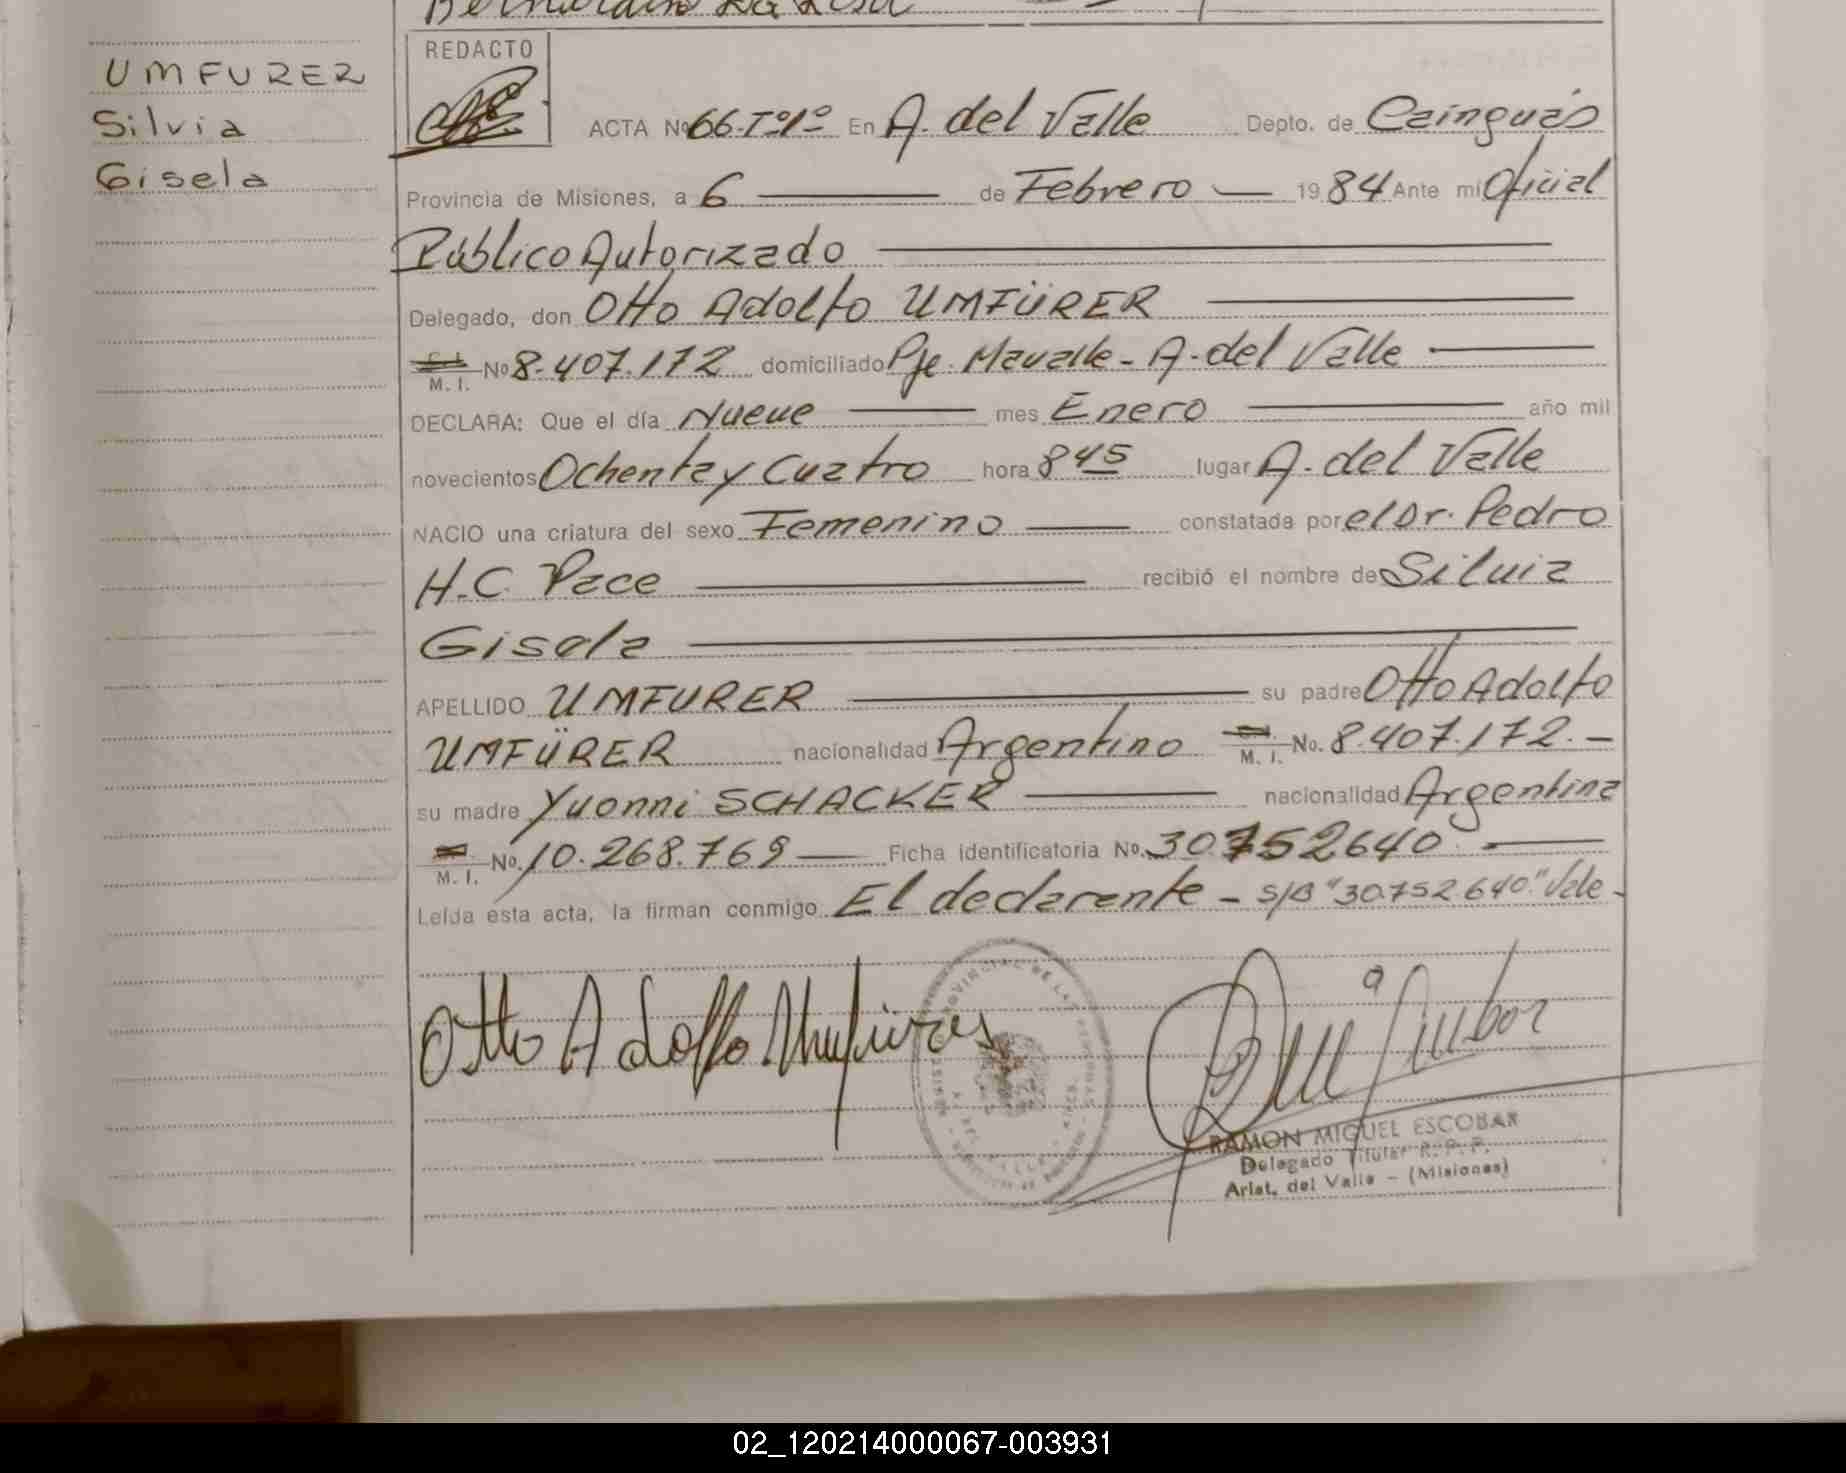 UMFURER
Silvia
Gisela
REDACTO
ACTA Nº 66-Tº1º En A. del Valle Depto. de Cainguás
Provincia de Misiones, a 6 de Febrero 1984 Ante mi Oficial
Público Autorizado
Delegado, don Otto Adolfo UMFÜRER
M. I. Nº 8.407.172 domiciliado Pje. Mavalle - A. del Valle
DECLARA: Que el día Nueve mes Enero año mil
novecientos Ochenta y Cuatro hora 8 45 lugar A. del Valle
NACIO una criatura del sexo Femenino constatada por el Dr. Pedro
H.C. Pace recibió el nombre de Silvia
Gisela
APELLIDO UMFURER su padre Otto Adolfo
UMFÜRER nacionalidad Argentino M. I. No. 8.407.172.-
su madre Yvonni SCHACKER nacionalidad Argentina
M. I. No. 10.268.769 Ficha identificatoria No. 30752640
Leída esta acta, la firman conmigo El declarante - S/B "30.752.640" Vale-
Otto Adolfo Umfürer
RAMON MIGUEL ESCOBAR
Delegado Titular R.P.P.
Arist. del Valle - (Misiones)
02_120214000067-003931